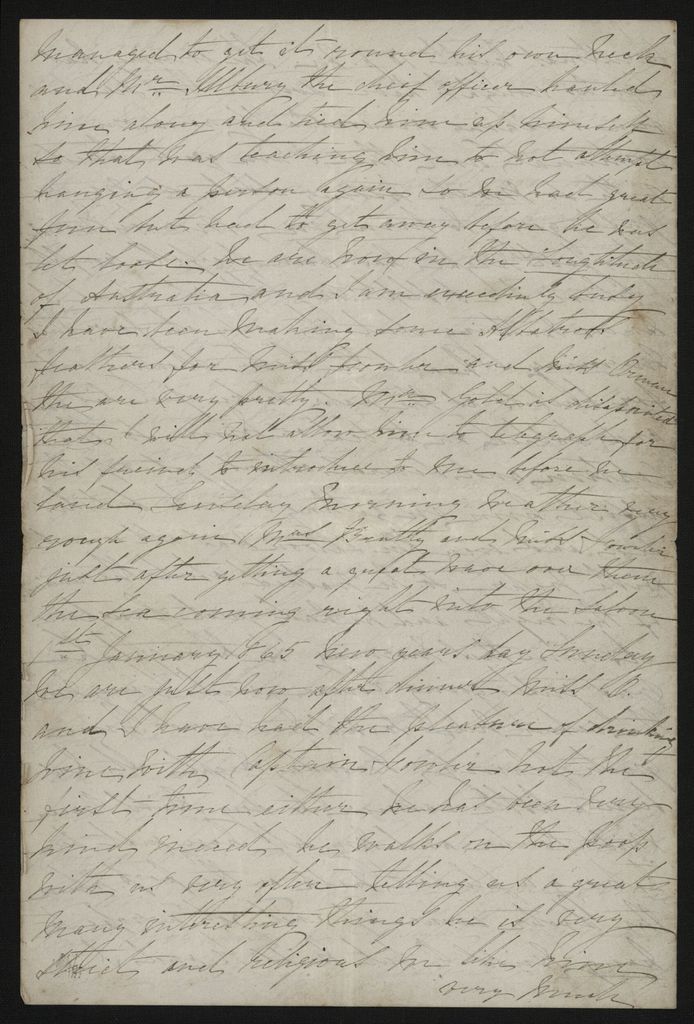 managed to get it round his own neck
and Mr. Ilbury the chief officer hauled
him along and tied him up himself
so that was teaching him to not attempt
hanging a person again so we had great
fun but had to get away before he was
let loose. We are now in the Longtitude
of Australia and I am exceedinly busy
I have been making some Albatross
feathers for Miss Fowler and Miss
the are very pretty. Mr Gold is
that I will not allow him to telegraph for
his freind to introduce to me before we
land Sunday morning weather very
rough again Mrs and Miss Fowler
just after getting a great wave over them
the sea coming right into the Saloon
1st January 1865 new years day Sunday
we are just now after dinner Miss B.
and I have had the pleasure of drinking
wine with Captain Fowler not the
first time either he has been very
kind indeed he walks on the poop
with us very often telling us a great
many interesting things he is very
strict and religious we like him
very much